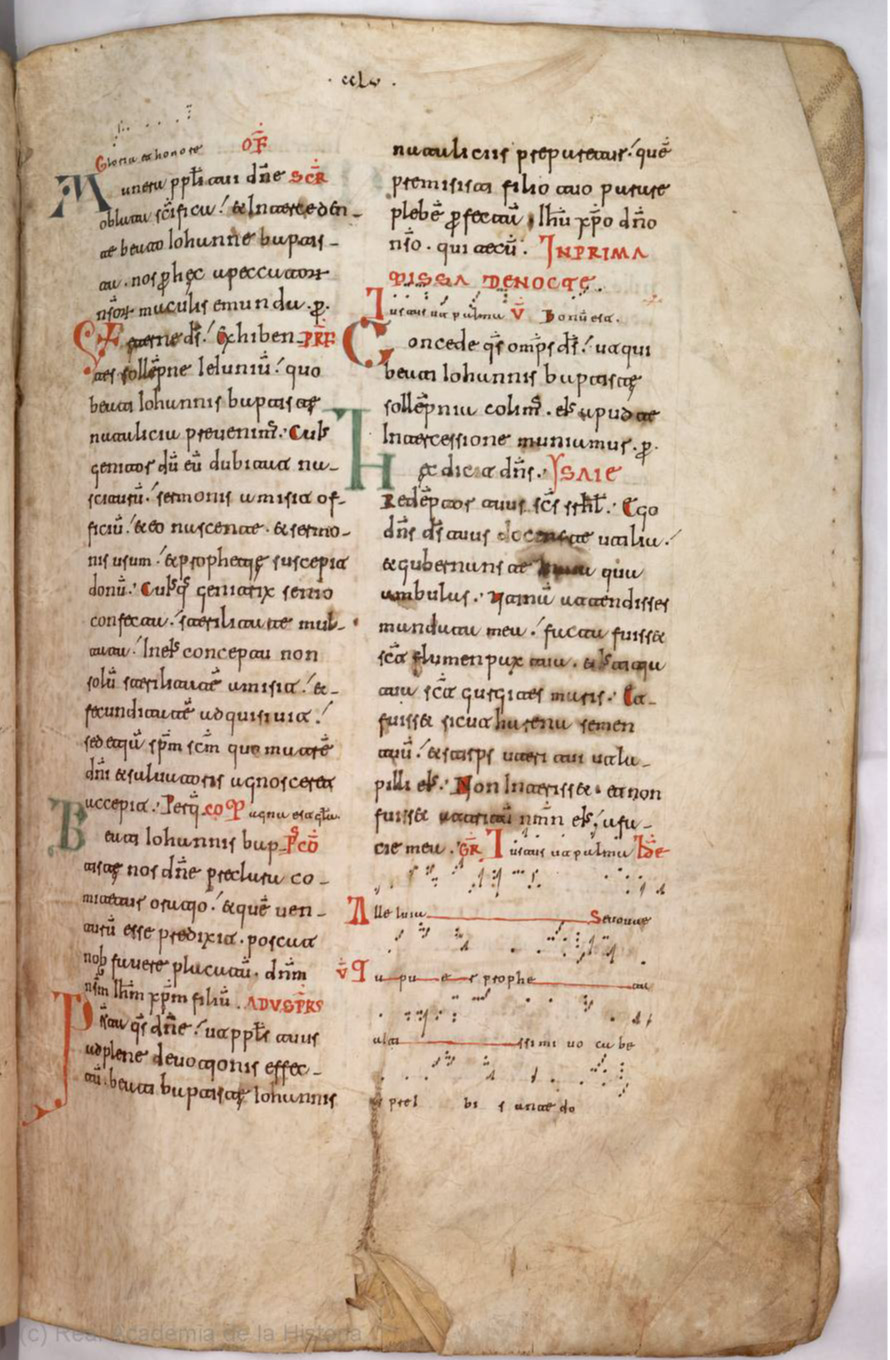 · ccLv ·
OF̄
Gloria et honore
Munera ppl̄i tui dn̄e SCR̄
oblata sc̄ifica / & Interceden-
te beato Iohanne baptis-
ta . nos p̄ hęc a peccator
nr̄or maculis emunda . p̄.
VE eterne ds̄ / Exhiben- PRF
tes sollēpne Ieiuniū / quo
beati Iohannis baptistę
natalicia prevenim̄ . Cuius
genitor dū eū dubitat na-
sciturū / sermonis amisit of-
ficiū / & eo nascente . & sermo-
nis usum / & prophetię suscepit
donū . Cuiusq; genitrix senio
confecta / sterilitate mul-
tata / In eius conceptu non
solū sterilitatē amisit / &
fecunditatē adquisivit /
sed etiā sp̄m sc̄m quo matrē
dn̄i & salvatoris agnosceret
accepit . Per q̄ cōP̄ Magna est glā.
Beati Iohannis bap- P̄CŌ
tistę nos dn̄e preclara co-
mitetur oratio / & quē ven-
turū esse predixit . poscat
nob favere placatū . dn̄m
nr̄m Ihm̄ xp̄m filiū . AD VESPRS
Pr̄sta qs̄ dn̄e / ut ppl̄s tuus
ad plene devotionis effec-
tū . beati baptistę Iohannis
nataliciis preparetur / quē
premisisti filio tuo parare
plebē p̄fectā Ihū xp̄o dn̄o
nr̄o . qui tecū . INPRIMA
MISSA DENOCTE .
Iustus ut palma V̄ Bonū est .
Concede qs̄ omp̄s ds̄ / ut qui
beati Iohannis baptistę
sollēpnia colim̄ . eius apud te
Intercessione muniamus . p̄.
Hęc dicit dn̄s . YSAIE
Redēptor tuus sc̄s isrl̄ . Ego
dn̄s ds̄ tuus docens te utilia /
& gubernans te in via qua
ambulas . Utinā attendisses
mandata mea / facta fuisset
sic̄ flumen pax tua . & iustitia
tua sic̄ gurgites maris . Et
fuisset sicut harena semen
tuū / & stirps uteri tui ut la-
pilli eius . Non Interisset & non
fuisset attritū nom̄ eius / a fa-
cie mea . GR̄ Iustus ut palma
Alleluia Serotine
V̄ Tu puer propheta
altissimi vocabe
ris prei bis ante do